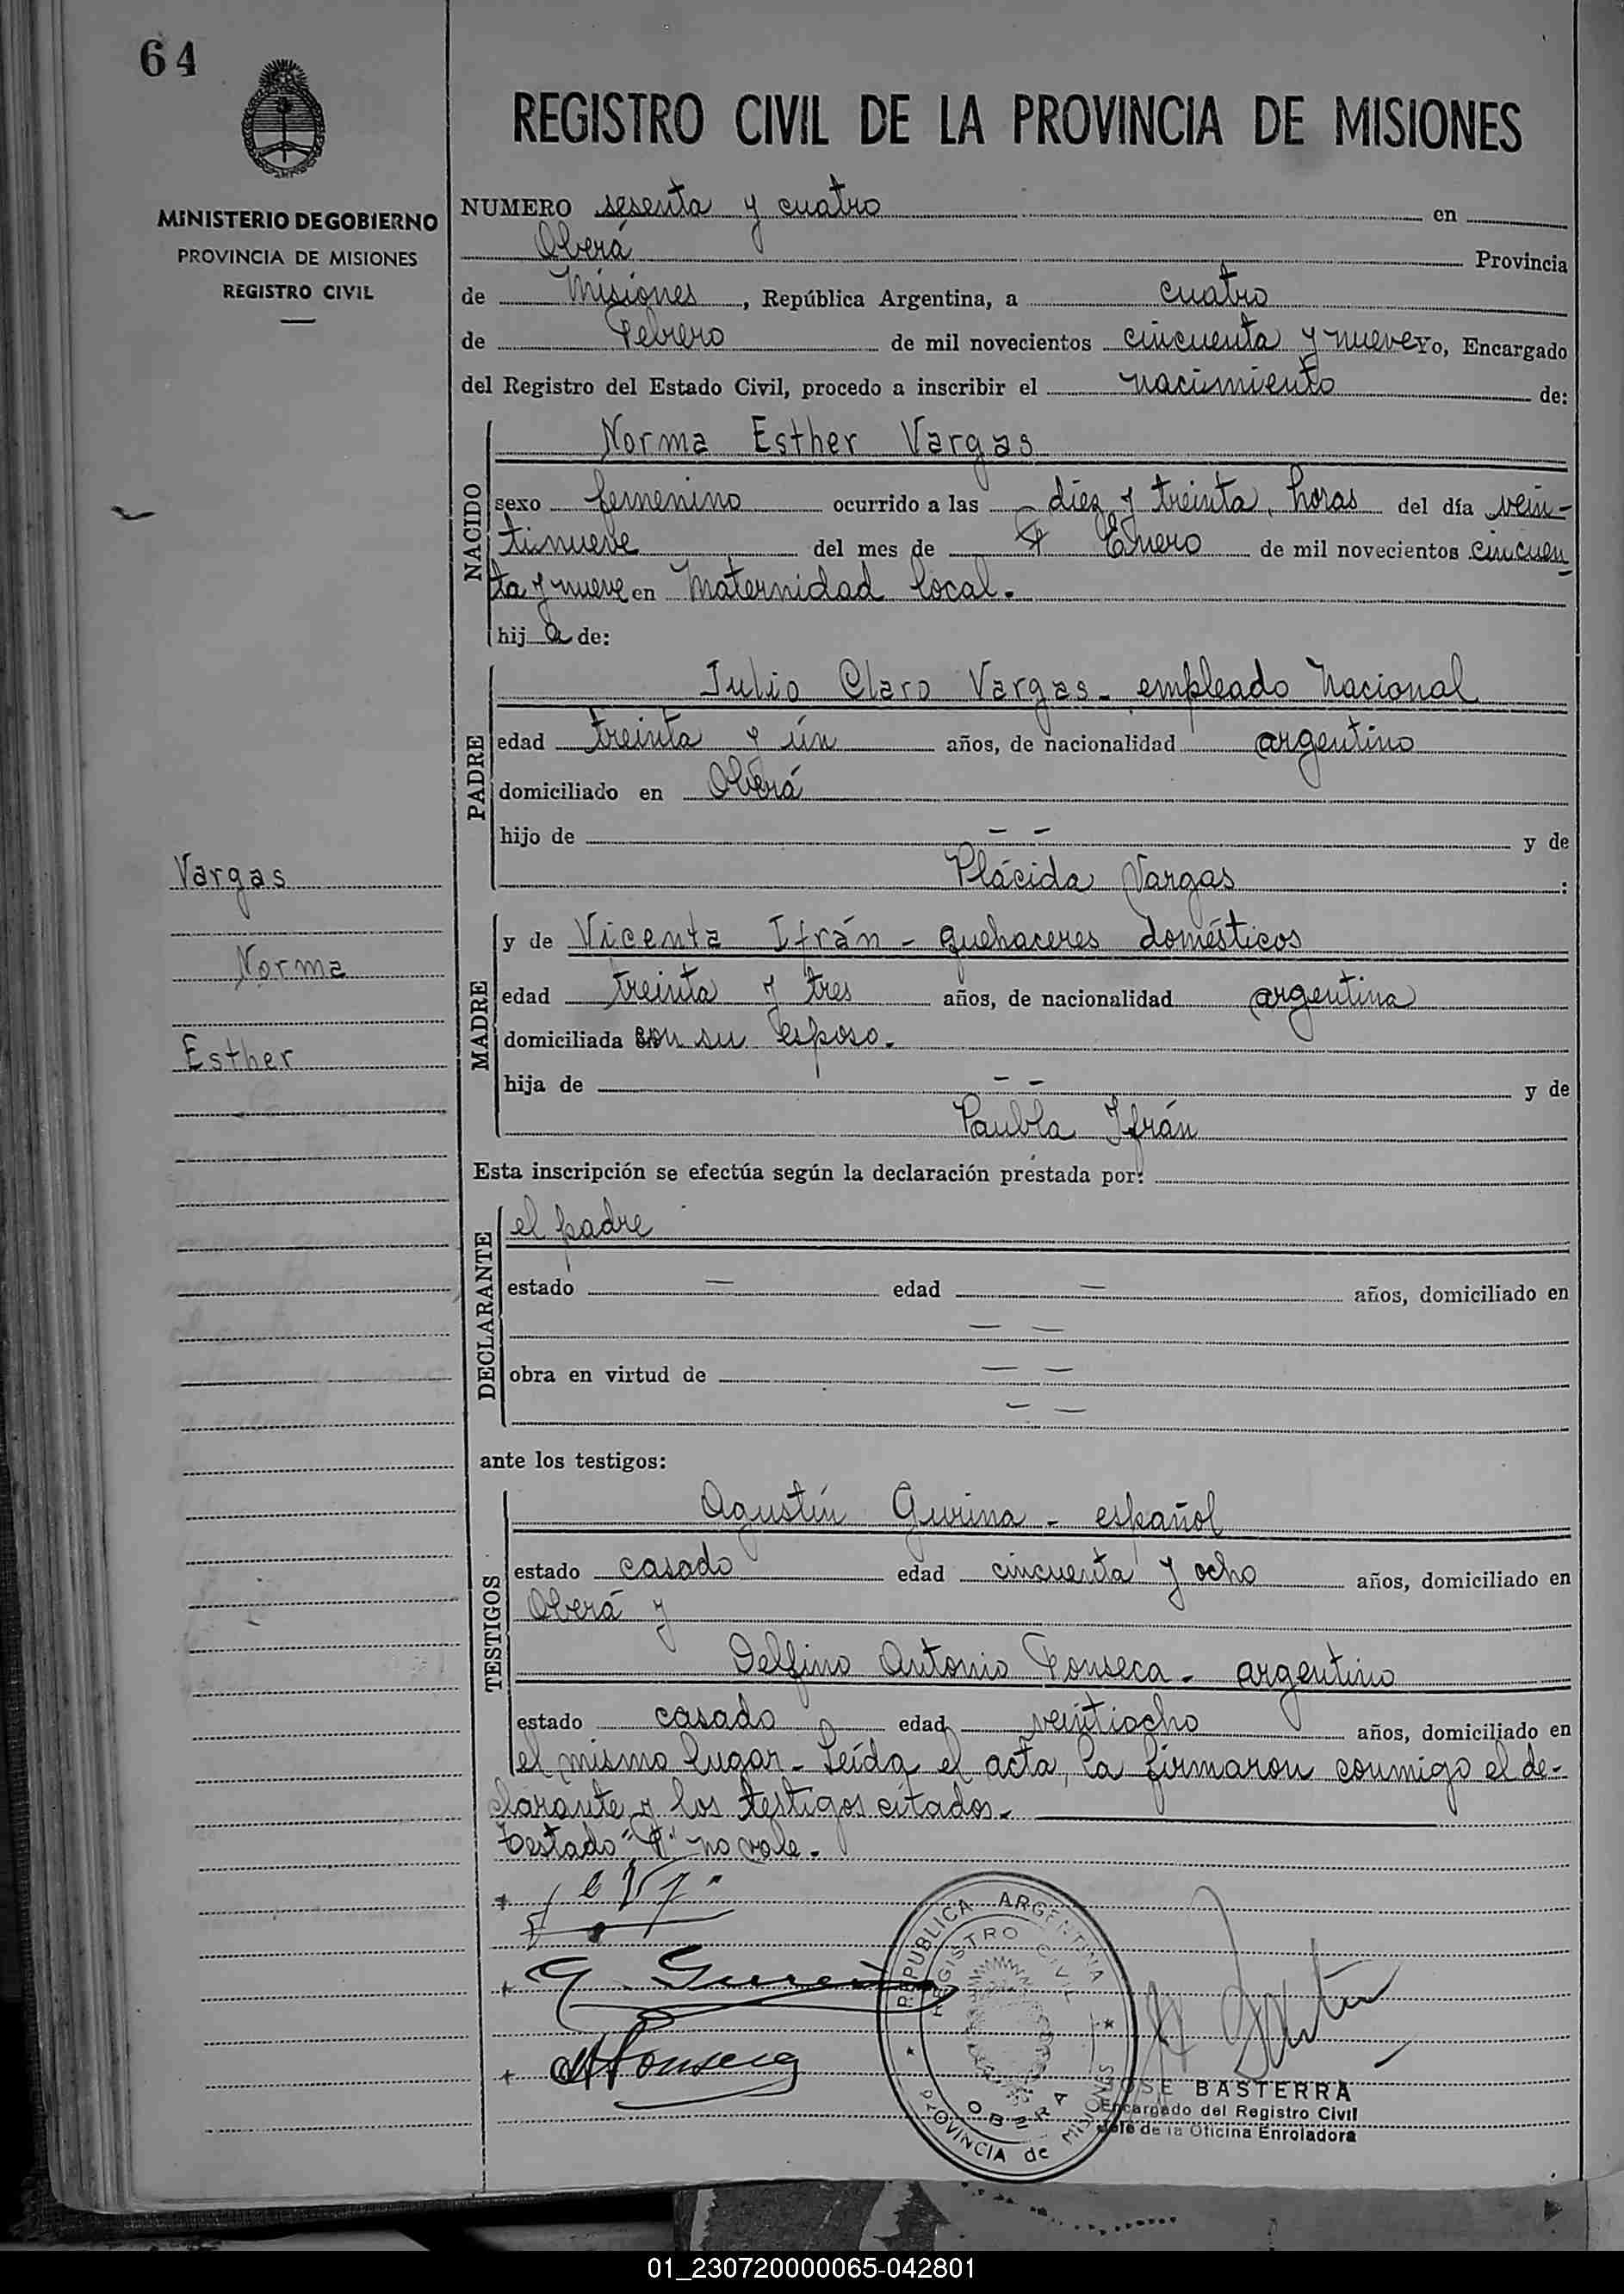 64
REGISTRO CIVIL DE LA PROVINCIA DE MISIONES
MINISTERIO DE GOBIERNO
PROVINCIA DE MISIONES
REGISTRO CIVIL
NUMERO sesenta y cuatro en
Oberá Provincia
de Misiones, República Argentina, a cuatro
de Febrero de mil novecientos cincuenta y nueve Yo, Encargado
del Registro del Estado Civil, procedo a inscribir el nacimiento de:
NACIDO
Norma Esther Vargas
sexo femenino ocurrido a las diez y treinta horas del día vein-
tinueve del mes de F Enero de mil novecientos cincuen
ta y nueve en Maternidad local.
hija de:
PADRE
Julio Claro Vargas - empleado Nacional
edad treinta y ún años, de nacionalidad argentino
domiciliado en Oberá
hijo de — — y de
Plácida Vargas :
MADRE
y de Vicenta Ifrán - quehaceres domésticos
edad treinta y tres años, de nacionalidad argentina
domiciliada con su esposo.
hija de — — y de
Paubla Ifrán
Esta inscripción se efectúa según la declaración prestada por:
DECLARANTE
el padre
estado — edad — años, domiciliado en
— —
obra en virtud de — —
— —
ante los testigos:
TESTIGOS
Agustín Gurina - español
estado casado edad cincuenta y ocho años, domiciliado en
Oberá y
Delfino Antonio Fonseca - argentino
estado casado edad veintiocho años, domiciliado en
el mismo lugar - Leída el acta, la firmaron conmigo el de-
clarante y los testigos citados.
Testado "F" no vale.
Vargas
Norma
Esther
REPUBLICA ARGENTINA
REGISTRO CIVIL
OBERA
PROVINCIA de MISIONES
JOSE BASTERRA
Encargado del Registro Civil
Jefe de la Oficina Enroladora
01_230720000065-042801